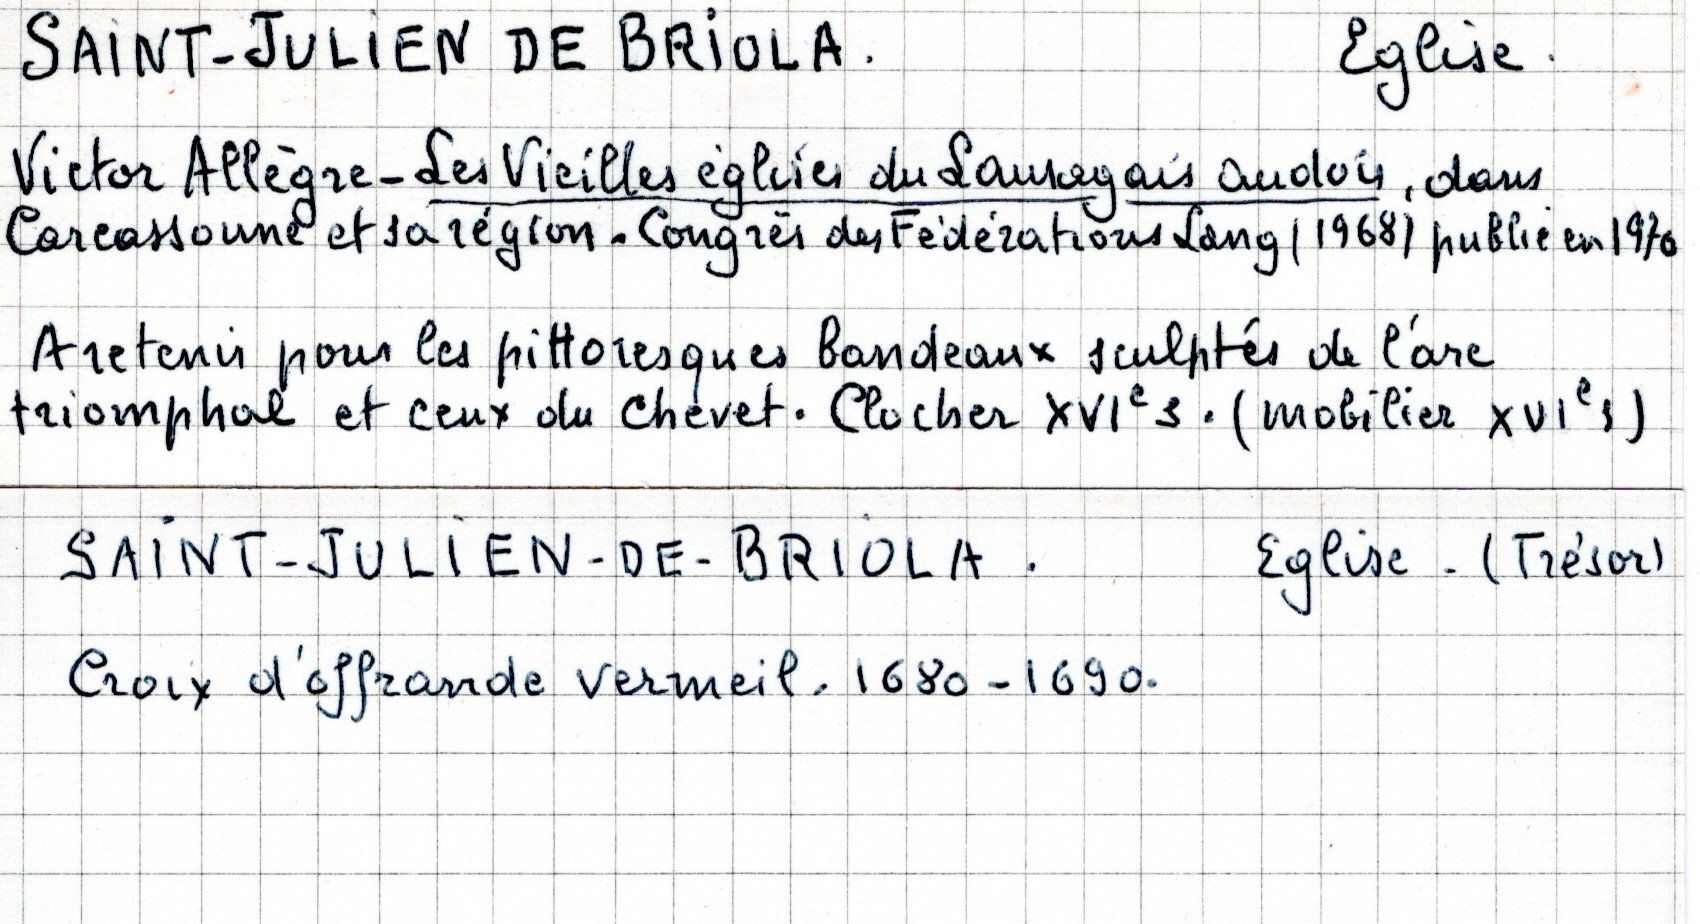 SAINT-JULIEN DE BRIOLA. Eglise.
Victor Allègre - Les Vieilles églises du Lauragais audois, dans
Carcassonne et sa région. Congrès des Fédérations Lang (1968) publié en 1970
A retenir pour les pittoresques bandeaux sculptés de l'arc
triomphal et ceux du chevet. Clocher XVIe s. (mobilier XVIe s)
SAINT-JULIEN-DE-BRIOLA. Eglise - (Trésor)
Croix d'offrande vermeil. 1680-1690.